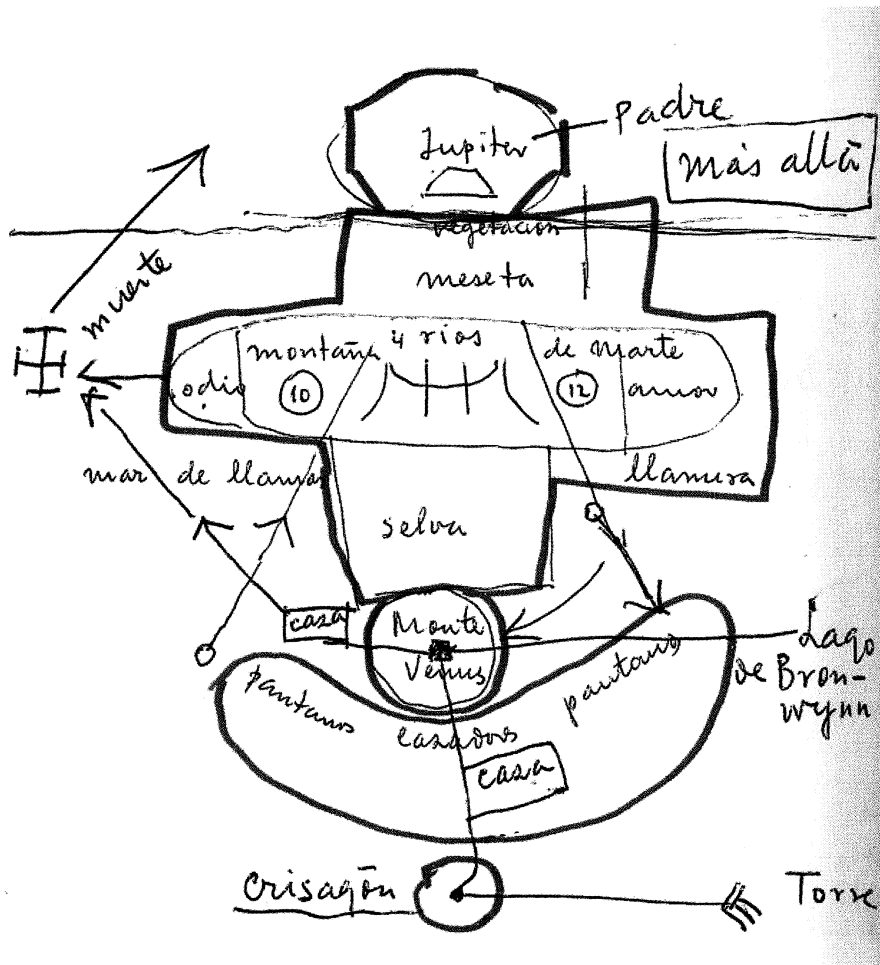 Padre
Jupiter
más allá
vegetación
meseta
muerte
montaña 4 ríos de Marte
odio 10 12 amor
mar de llamas llanura
selva
casa
Monte
Venus
Lago
de Bron-
wynn
pantanos pantanos
cazadores
casa
Crisagón
Torre